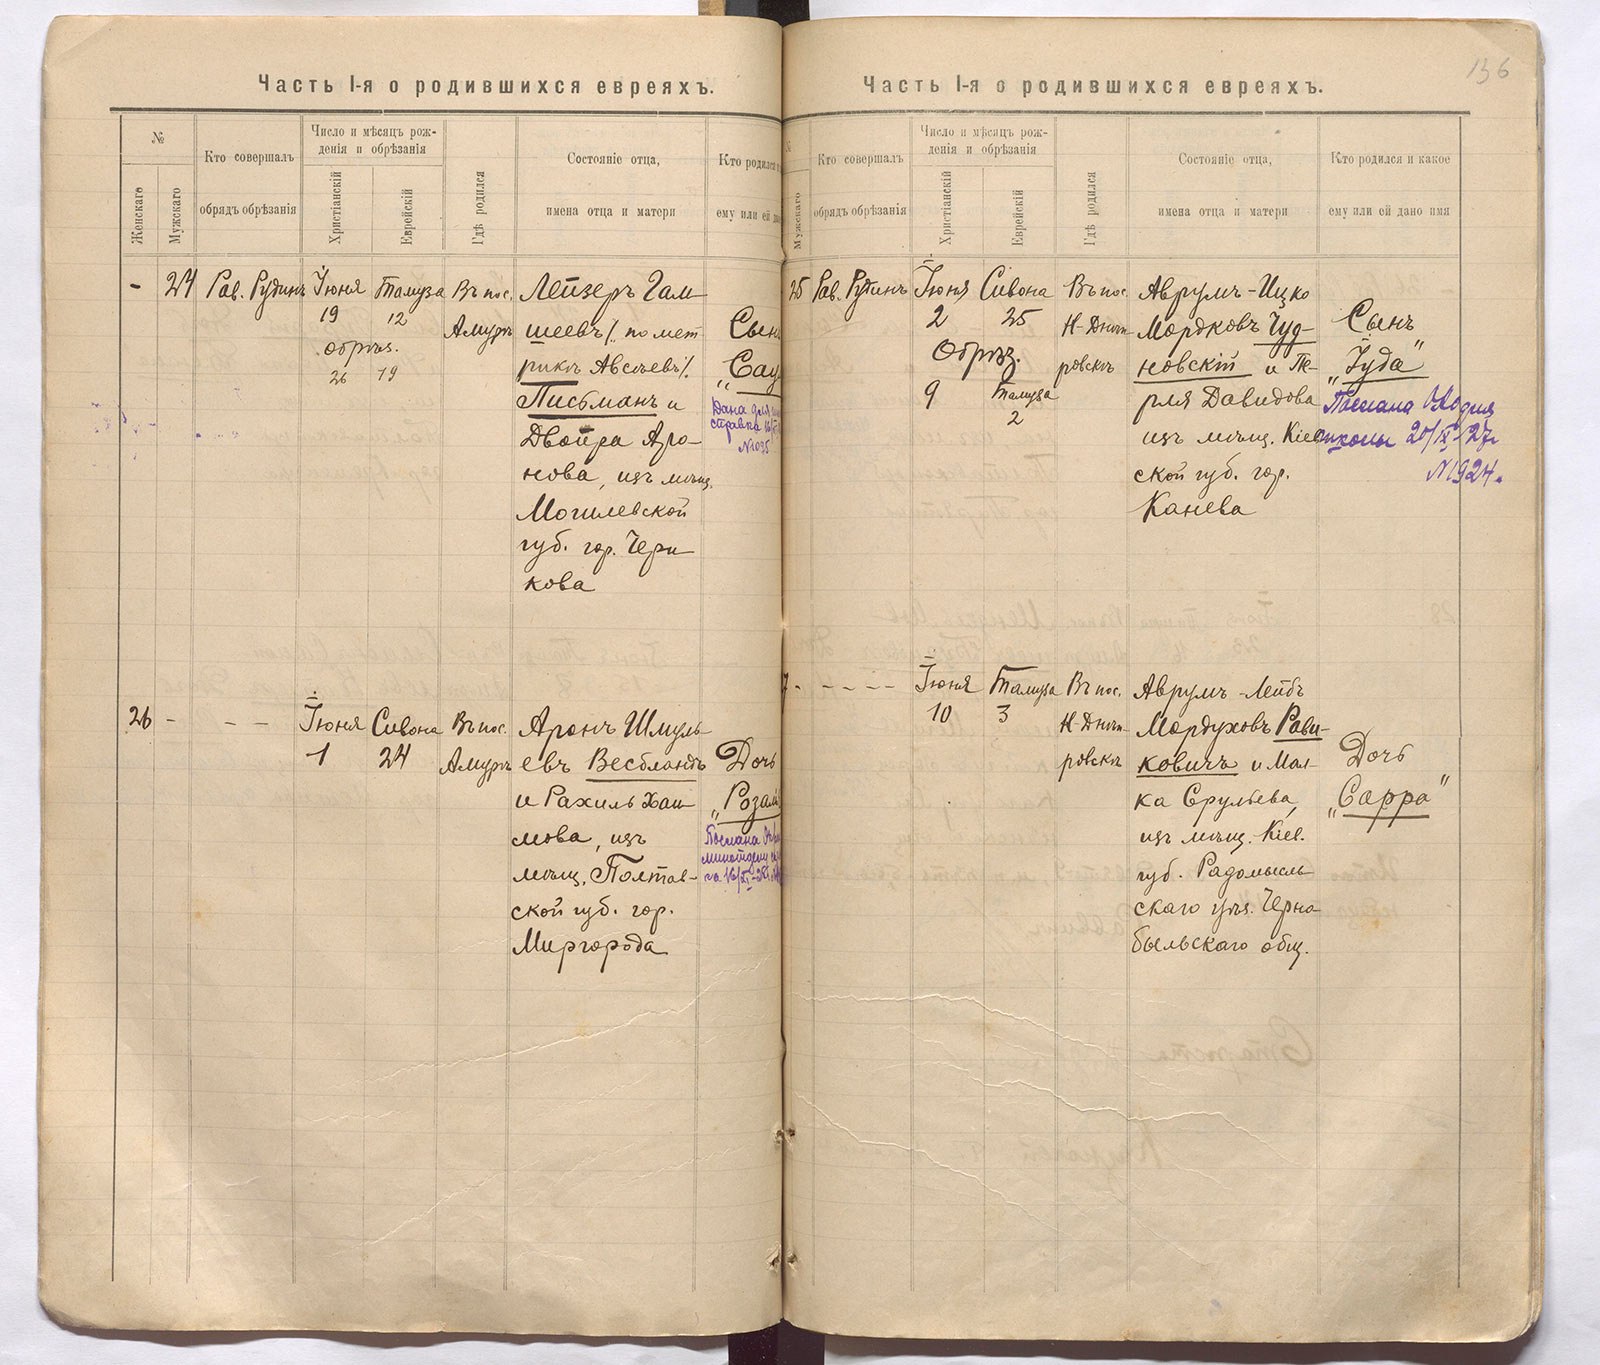 Часть I-я о родившихся евреяхъ.
№
Женскаго
Мужскаго
Кто совершалъ
обрядъ обрѣзанія
Число и мѣсяцъ рож-
денія и обрѣзанія
Христіанскій
Еврейскій
Гдѣ родился
Состояніе отца,
имена отца и матери
Кто родился
ему или ей
-
24
Рав. Рудинъ
Іюня
19
обрѣз.
26
Тамуза
12
19
Въ пос.
Амуръ
Лейзеръ Гам-
шеевъ /. по мет-
рикѣ Авсѣевъ /.
Письманъ и
Двойра Аро-
нова, изъ мѣщ.
Могилевской
губ. гор. Чери-
кова
Сынъ
Дана для
справка
N1035
26
-
- -
Іюня
1
Сивона
24
Въ пос.
Амуръ
Аронъ Шмуль-
евъ Весбландъ
и Рахиль Хаи-
мова, изъ
мѣщ. Полтав-
ской губ. гор.
Миргорода
Дочь
Послана
136
Часть I-я о родившихся евреяхъ.
Мужскаго
Кто совершалъ
обрядъ обрѣзанія
Число и мѣсяцъ рож-
денія и обрѣзанія
Христіанскій
Еврейскій
Гдѣ родился
Состояніе отца,
имена отца и матери
Кто родился и какое
ему или ей дано имя
25
Рав. Рудинъ
Іюня
2
Обрѣз.
9
Сивона
25
Тамуза
2
Въ пос.
Н-Днѣп-
ровскѣ
Аврумъ-Ицко
Мордковъ Чуд-
новскій и Пе-
рля Давидова
изъ мѣщ. Кіев-
ской губ. гор.
Канева
Сынъ
„Іуда"
Послана
школы 20/IX-27г
N1924.
- - - -
Іюня
10
Тамуза
3
Въ пос.
Н-Днѣп-
ровскѣ
Аврумъ-Лейбъ
Мордуховъ Рави-
ковичъ и Мал-
ка Срульева,
изъ мѣщ. Кіев.
губ. Радомысль-
скаго уѣз. Черно-
быльскаго общ.
Дочь
„Сарра"